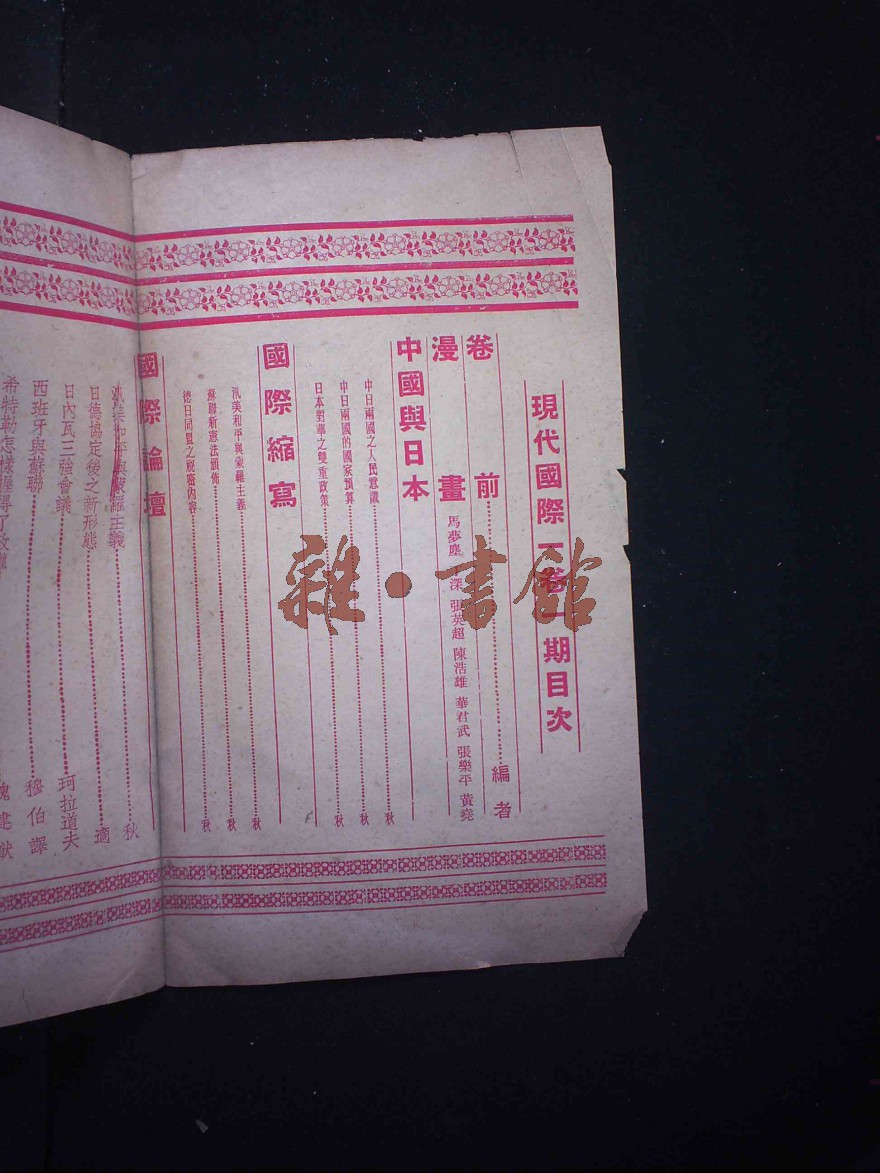 現代國際一卷一期目次
卷前 編者
漫畫 馬夢塵 深 張英超 陳浩雄 華君武 張樂平 黃堯
中國與日本
中日兩國之人民意識 秋
中日兩國的國家預算 秋
日本對華之雙重政策 秋
國際縮寫
汎美和平與蒙羅主義 秋
蘇聯新憲法頒佈 秋
德日同盟之祕密內容 秋
國際論壇
汎美和平與蒙羅主義 秋
日德協定後之新形態 適
日內瓦三強會議 珂拉道夫
西班牙與蘇聯 穆伯譯
希特勒怎樣獲得了政權 魏建猷
雜·書館